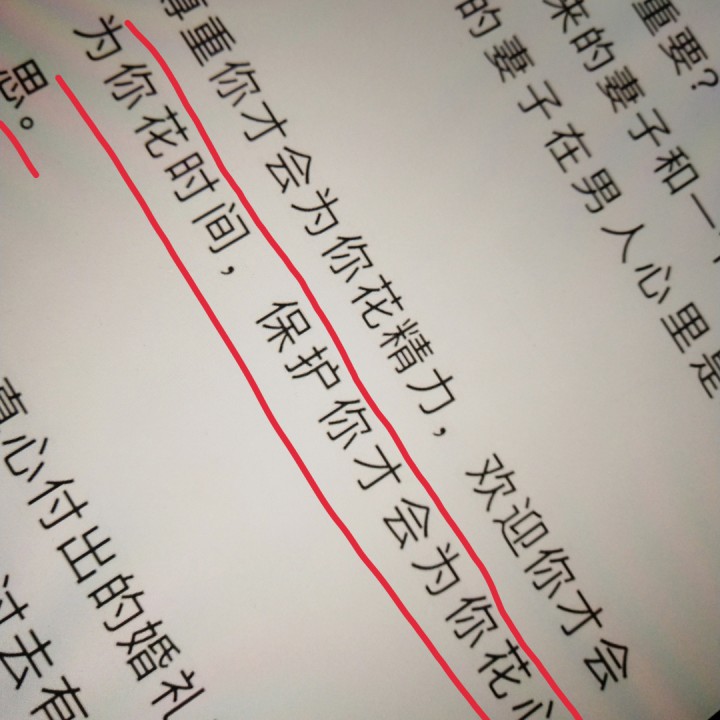 重要?
来的妻子和一
的妻子在男人心里是
尊重你才会为你花精力,欢迎你才会
为你花时间,保护你才会为你花心
思。
真心付出的婚礼
过去有